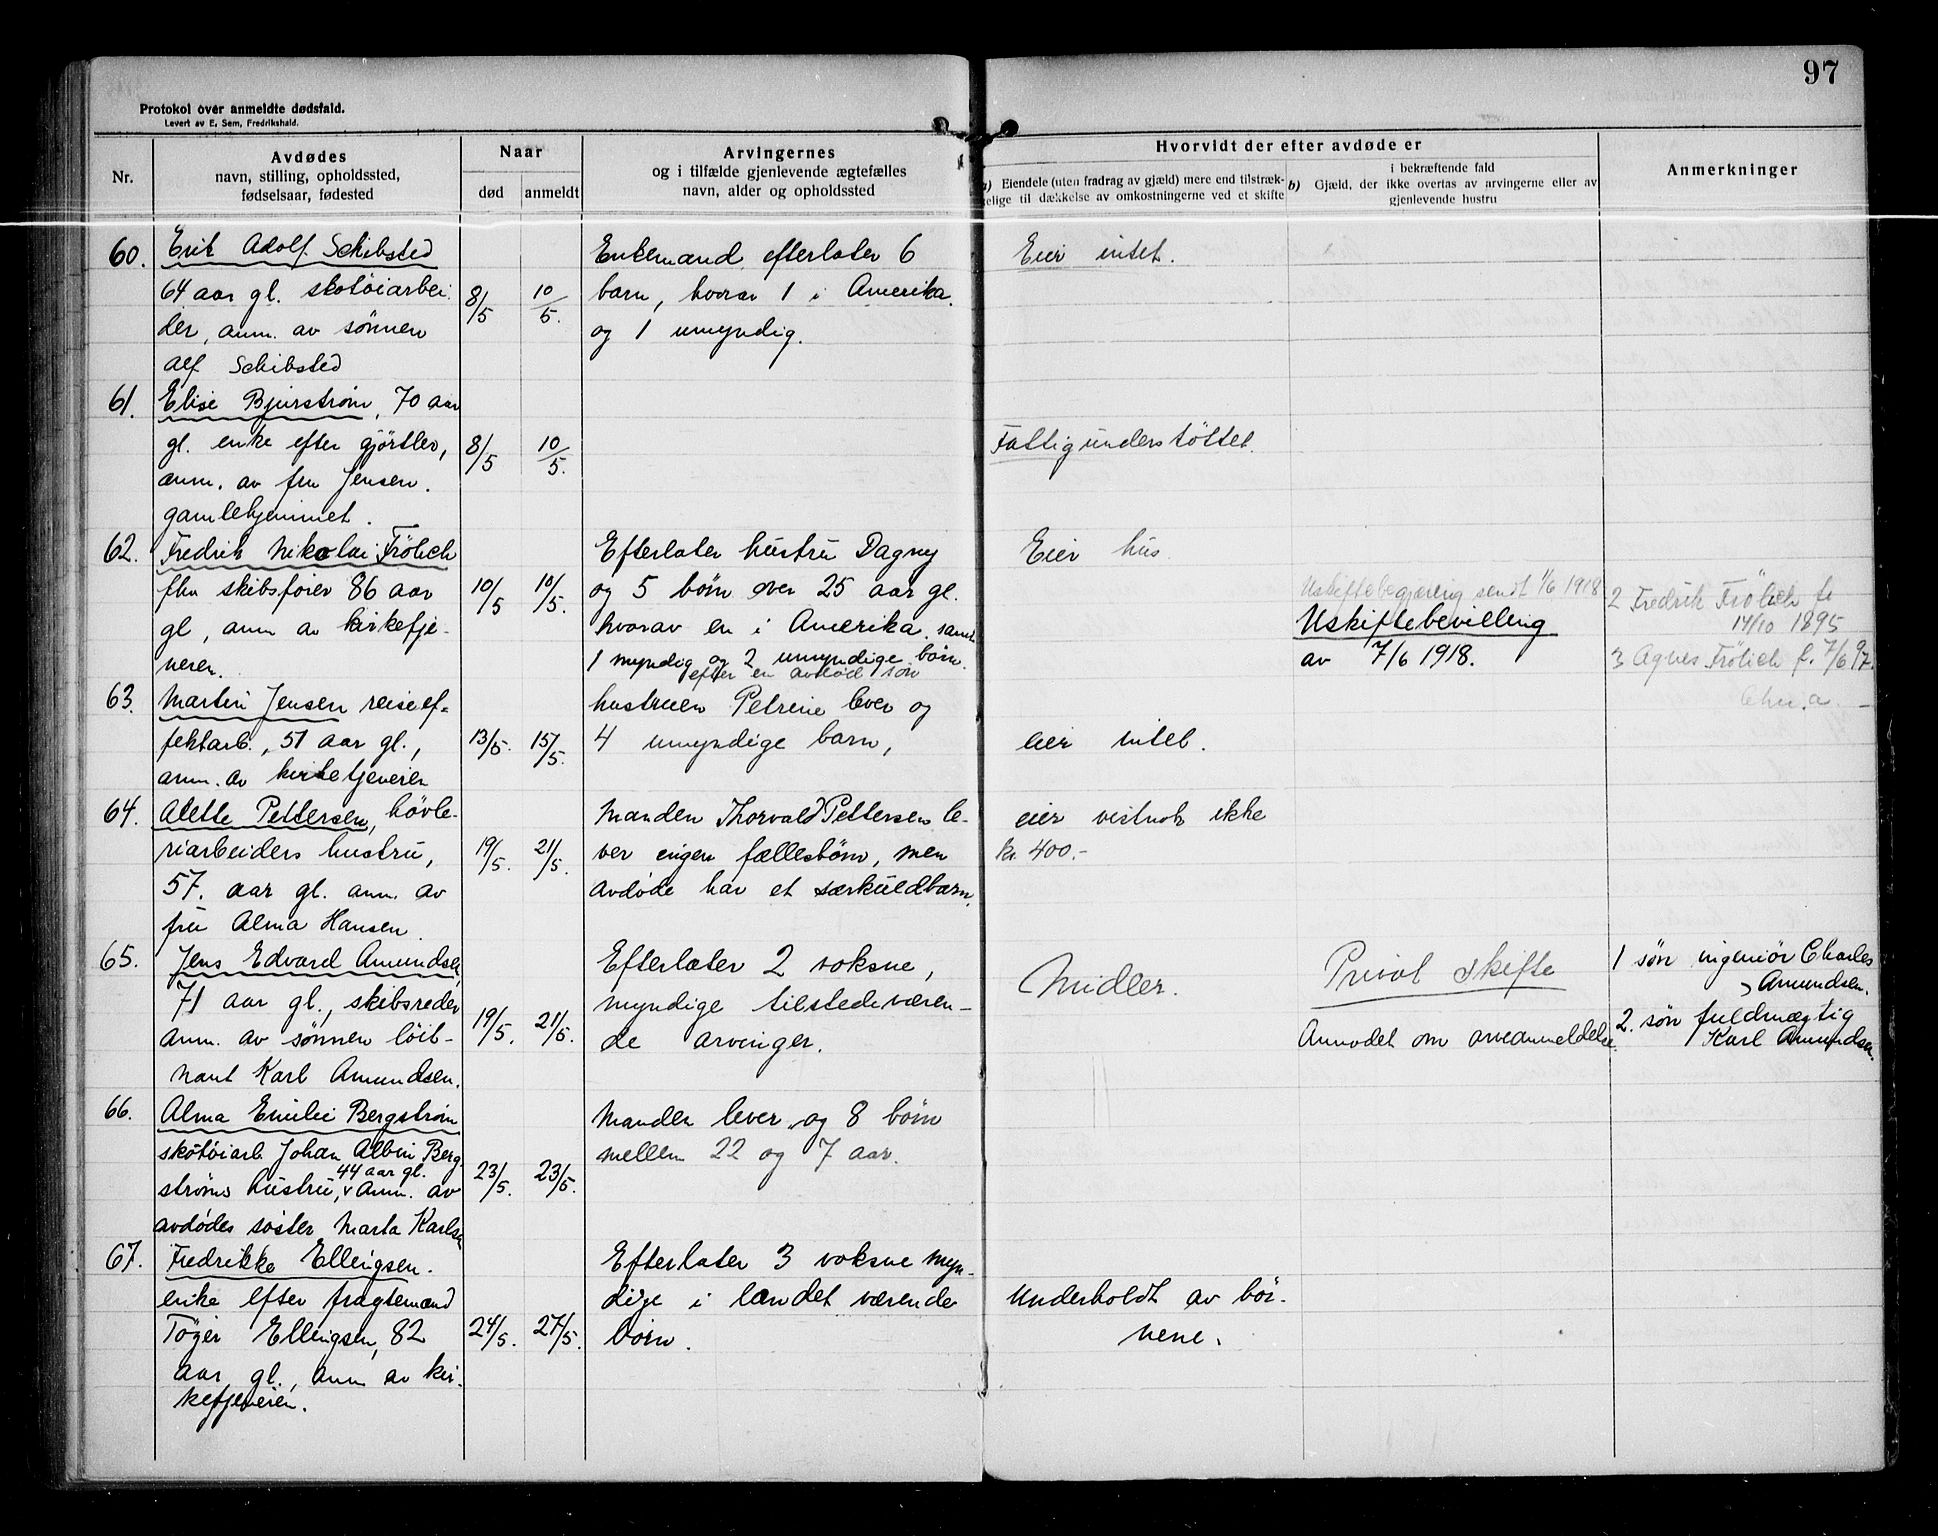 97
Protokol over anmeldte dødsfald.
Levert av E. Sem, Fredrikshald.
Nr.
Avdødes
navn, stilling, opholdssted,
fødselsaar, fødested
Naar
død
anmeldt
Arvingernes
og i tilfælde gjenlevende ægtefælles
navn, alder og opholdssted
Hvorvidt der efter avdøde er
a) Eiendele (uten fradrag av gjæld) mere end tilstræk-
kelige til dækkelse av omkostningerne ved et skifte
i bekræftende fald
b) Gjæld, der ikke overtas av arvingerne eller av
gjenlevende hustru
Anmerkninger
60.
Erik Adolf Schibsted
64 aar gl. skotøiarbei-
der, anm. av sönnen
Alf Schibsted
8/5
10/5.
Enkemand, efterlater 6
barn, hvorav 1 i Amerika.
og 1 umyndig.
Eier intet.
61.
Elise Bjurström, 70 aar
gl. enke efter gjörtler,
anm. av fru Jensen.
gamlehjemmet.
8/5
10/5.
Fattigunderstöttet.
62.
Fredrik Nikolai Frölich
fhv skibsförer 86 aar
gl, anm av kirketje-
neren.
10/5
10/5.
Efterlater hustru Dagny
og 5 börn over 25 aar gl.
hvorav en i Amerika. samt
1 myndig og 2 umyndige börn.
efter en avdöd sön
Eier hus.
Uskiftebegjæring sendt 1/6 1918
Uskiftebevilling
av 7/6 1918.
2 Fredrik Frölich f.
14/10 1895
3 Agnes Frölich f. 7/6 97.
Chr.a.
63.
Martin Jensen reiseef-
fektarb., 51 aar gl.,
anm. av kirketjeneren
13/5.
15/5.
hustruen Petrine lever og
4 umyndige barn,
eier intet.
64.
Alette Pettersen, hövle-
riarbeiders hustru,
57. aar gl. anm. av
fru Alma Hansen.
19/5.
21/5.
Manden Thorvald Pettersen le-
ver ingen fællesbörn, men
avdöde har et særkuldbarn.
eier vistnok ikke
kr. 400.-
65.
Jens Edvard Amundsen,
71 aar gl., skibsreder
anm. av sönnen löit-
nant Karl Amundsen.
19/5.
21/5.
Efterlater 2 voksne,
myndige tilstedeværen-
de arvinger.
Midler.
Privat skifte
Anmodet om arveanmeldelse.
1 sön ingeniör Charles
Amundsen.
2. sön fuldmægtig
Karl Amundsen.
66.
Alma Emilie Bergström
skotöiarb. Johan Albin Berg-
44 aar gl.
ströms hustru, v anm. av
avdödes söster Marta Karlsen
23/5.
23/5.
Manden lever og 8 börn
mellem 22 og 7 aar.
67.
Fredrikke Ellingsen.
enke efter fragtemand
Töger Ellingsen, 82
aar gl., anm av kir-
ketjeneren.
24/5.
27/5.
Efterlater 3 voksne myn-
dige i landet værende
börn.
Underholdt av bör-
nene.